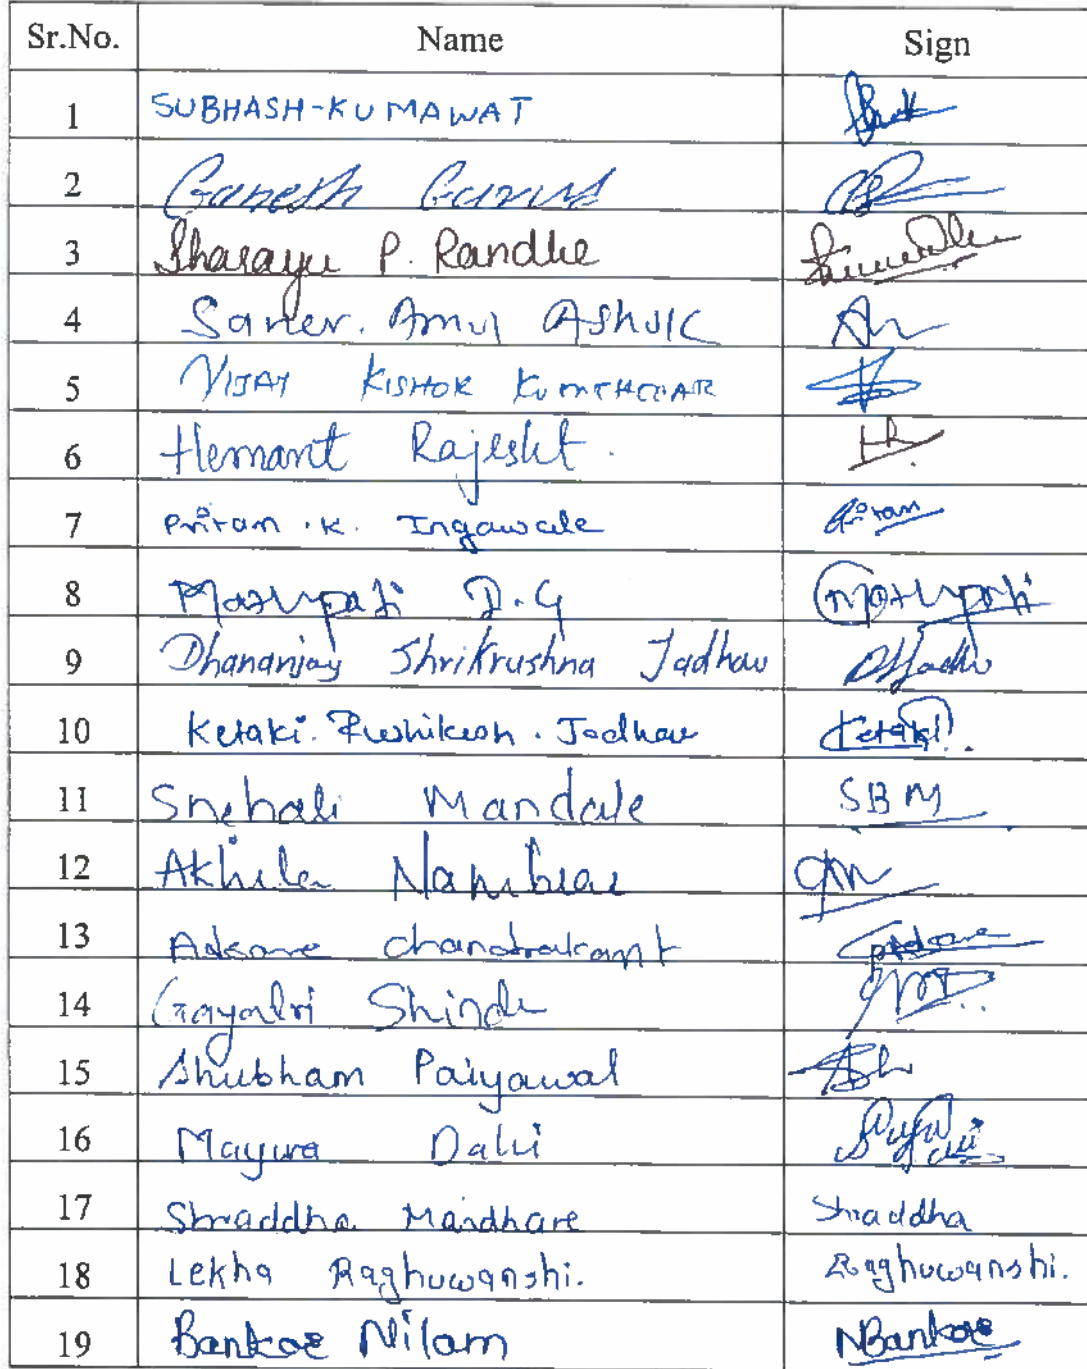 Sr.No. Name Sign
1 SUBHASH-KUMAWAT
2 Ganesh
3 Sharayu P. Randhe
4 Saner. Amul Ashok
5 VIJAY KISHOR
6 Hemant Rajesht.
7 Pritam .K. Ingawale
8 Mathpati D.G Mathpati
9 Dhananjay Shrikrushna Jadhav
10 Ketaki. Rushikesh. Jadhav Ketaki
11 Snehali Mandale SBM
12 Akhila Nambiar
13 Adsare Chandrakant Adsare
14 Gayatri Shinde
15 Shubham Paiyawal
16 Mayura Dalvi
17 Shraddha Mandhare Shraddha
18 Lekha Raghuwanshi. Raghuwanshi.
19 Bankar Nilam NBankar